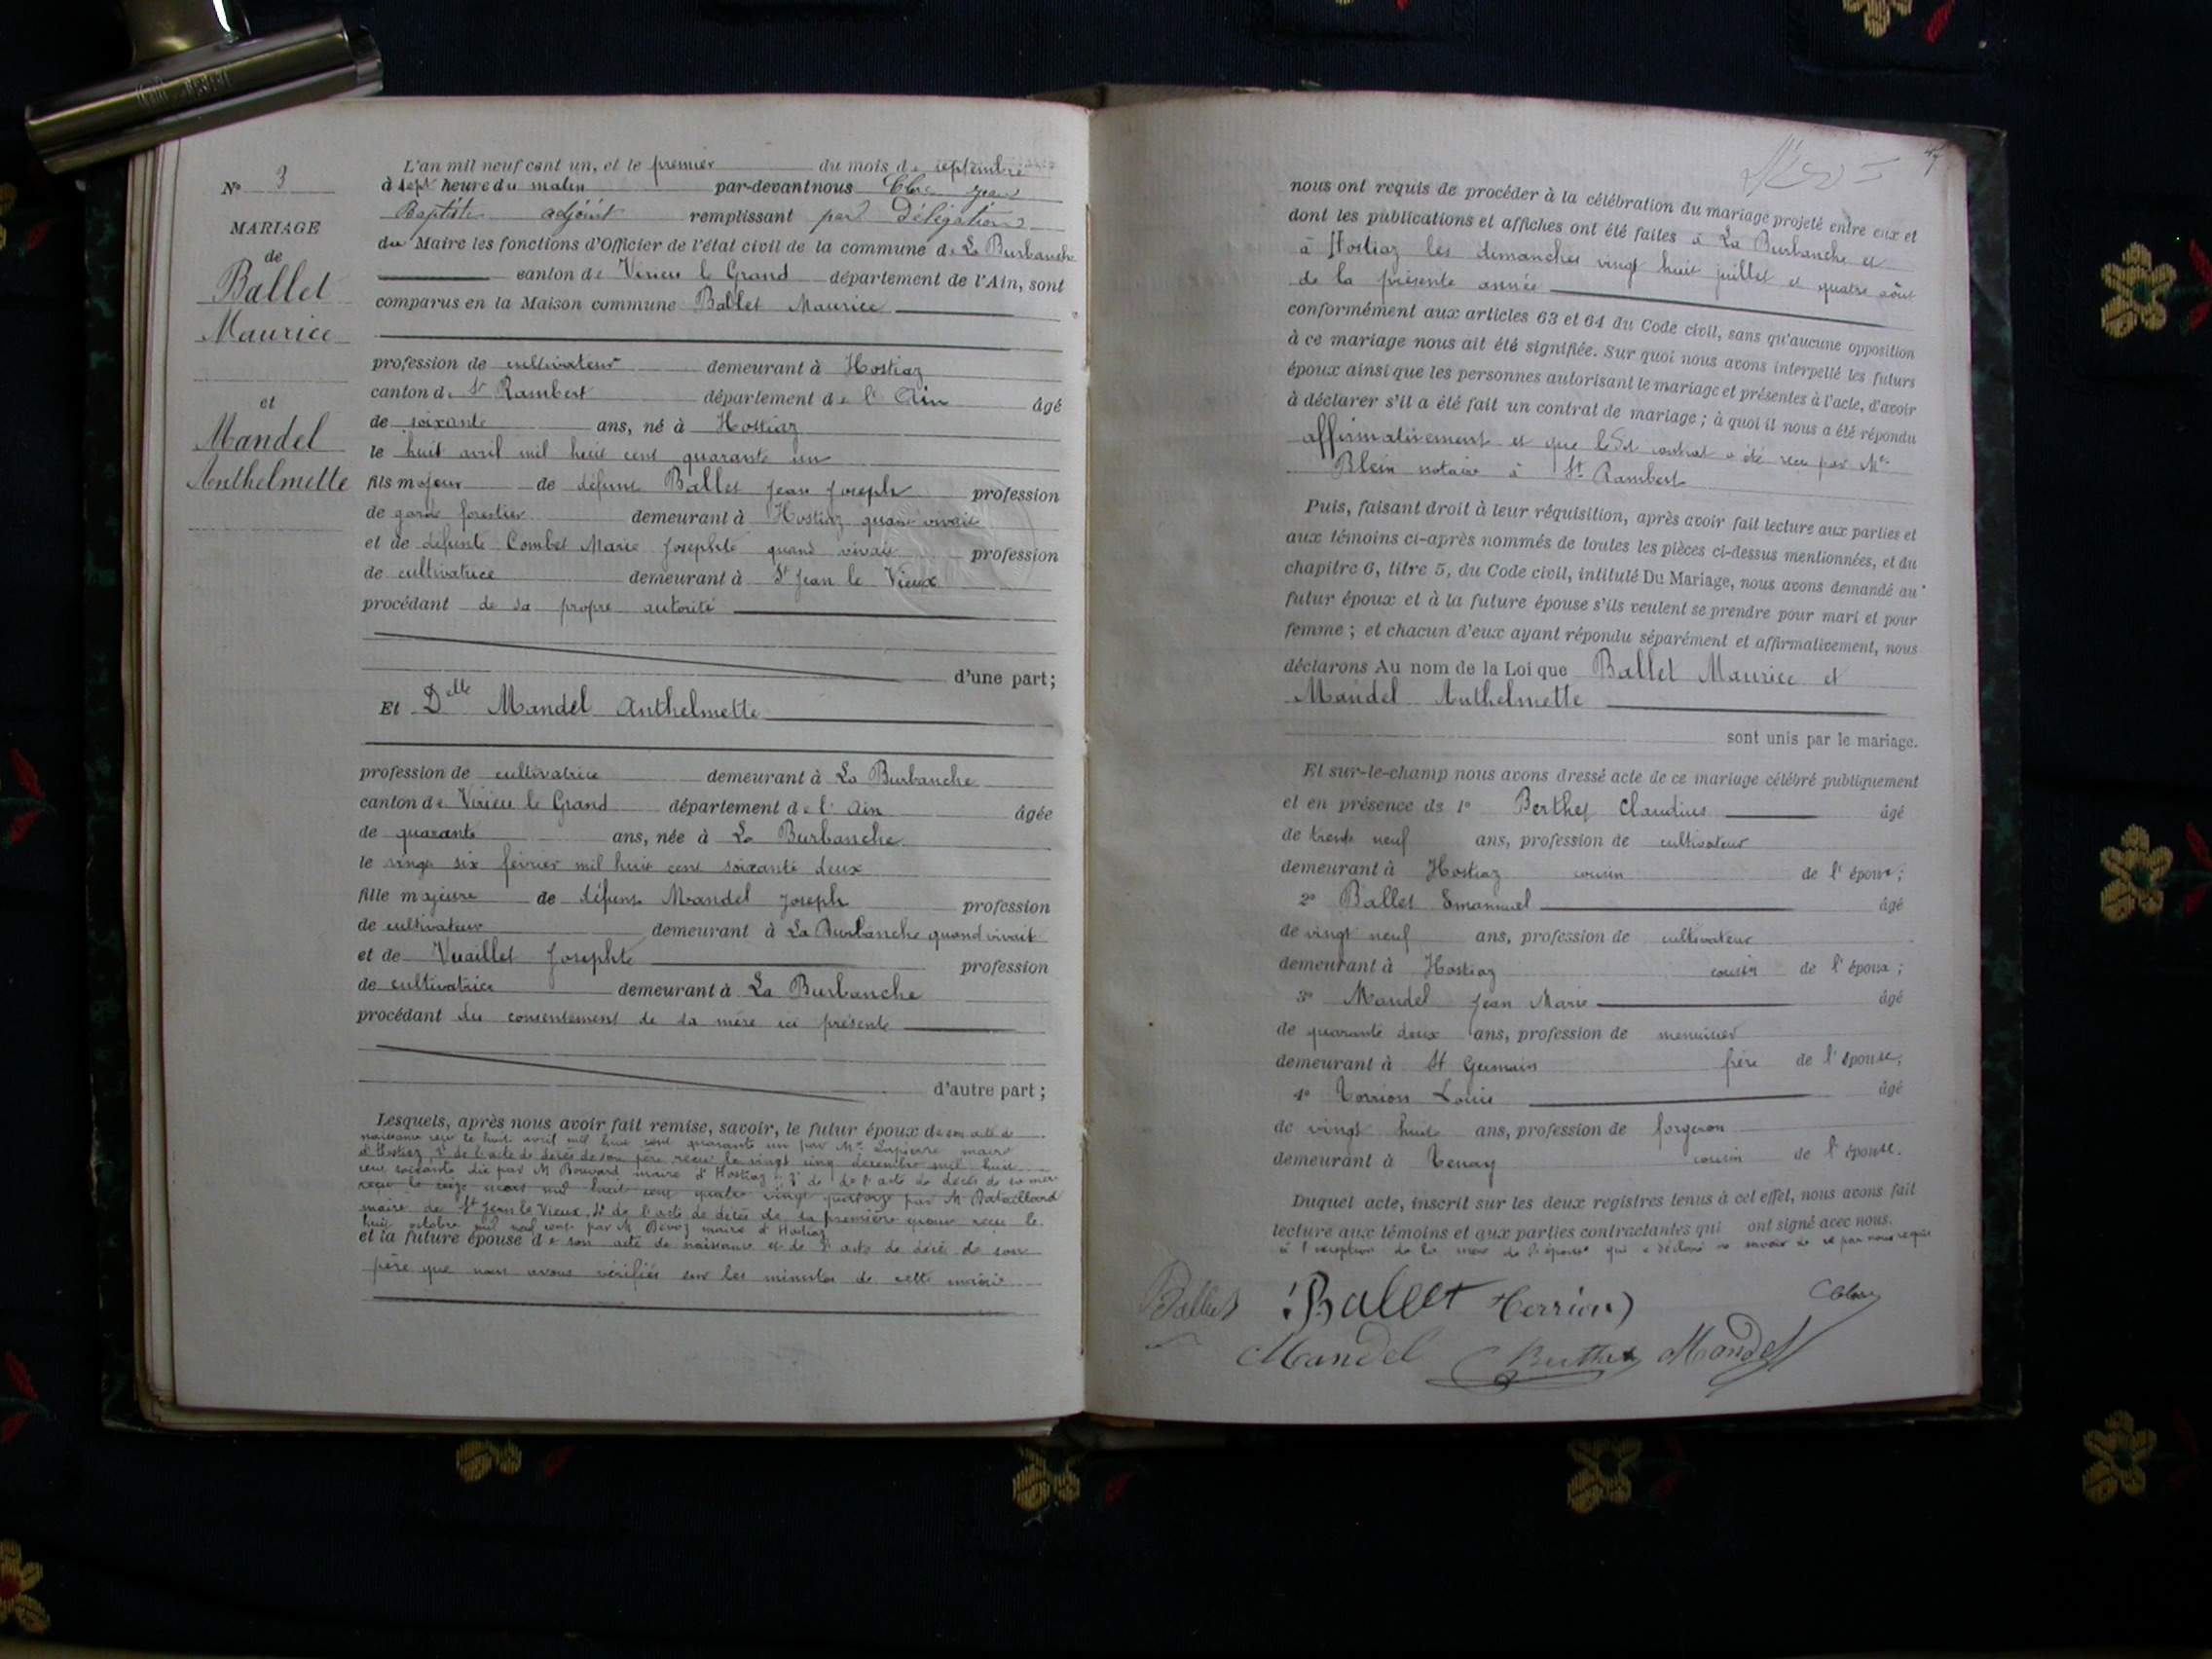 N° 3
MARIAGE
de
Ballet
Maurice
et
Mandel
Anthelmette
L'an mil neuf cent un, et le premier du mois de septembre
à sept heure du matin par-devant nous Clerc Jean
Baptiste adjoint remplissant par Délégation
du Maire les fonctions d'Officier de l'état civil de la commune de La Burbanche
canton de Virieu le Grand département de l'Ain, sont
comparus en la Maison commune Ballet Maurice
profession de cultivateur demeurant à Hostiaz
canton de St Rambert département de l'Ain âgé
de soixante ans, né à Hostiaz
le huit avril mil huit cent quarante un
fils majeur de défunt Ballet Jean Joseph profession
de garde forestier demeurant à Hostiaz quand vivait
et de défunte Combet Marie Josephte quand vivait profession
de cultivatrice demeurant à St Jean le Vieux
procédant de sa propre autorité
d'une part;
Et Delle Mandel Anthelmette
profession de cultivatrice demeurant à La Burbanche
canton de Virieu le Grand département de l'Ain âgée
de quarante ans, née à La Burbanche
le vingt six février mil huit cent soixante deux
fille majeure de défunt Mandel Joseph profession
de cultivateur demeurant à La Burbanche quand vivait
et de Vuaillet Josephte profession
de cultivatrice demeurant à La Burbanche
procédant du consentement de sa mère ici présente
d'autre part;
Lesquels, après nous avoir fait remise, savoir, le futur époux de son acte de
naissance reçu le huit avril mil huit cent quarante un par Mr Lapierre maire
d'Hostiaz, 2° de l'acte de décès de son père reçu le vingt cinq décembre mil huit
cent soixante dix par M Bouvard maire d'Hostiaz; 3° de l'acte de décès de sa mère
reçu le mars mil huit cent quatre vingt quatorze par M Bataillard
maire de St Jean le Vieux, 4° de l'acte de décès de sa première épouse reçu le
huit octobre mil neuf cent par M Bévoz maire d'Hostiaz
et la future épouse de son acte de naissance et de l'acte de décè de son
père que nous avons vérifiés sur les minutes de cette mairie
47
nous ont requis de procéder à la célébration du mariage projeté entre eux et
dont les publications et affiches ont été faites à La Burbanche et
à Hostiaz les dimanches vingt huit juillet et quatre août
de la présente année
conformément aux articles 63 et 64 du Code civil, sans qu'aucune opposition
à ce mariage nous ait été signifiée. Sur quoi nous avons interpellé les futurs
époux ainsi que les personnes autorisant le mariage et présentes à l'acte, d'avoir
à déclarer s'il a été fait un contrat de mariage; à quoi il nous a été répondu
affirmativement et que ledit contrat a été reçu par Me
Blein notaire à St Rambert
Puis, faisant droit à leur réquisition, après avoir fait lecture aux parties et
aux témoins ci-après nommés de toutes les pièces ci-dessus mentionnées, et du
chapitre 6, titre 5, du Code civil, intitulé Du Mariage, nous avons demandé au
futur époux et à la future épouse s'ils veulent se prendre pour mari et pour
femme; et chacun d'eux ayant répondu séparément et affirmativement, nous
déclarons Au nom de la Loi que Ballet Maurice et
Mandel Anthelmette
sont unis par le mariage.
Et sur-le-champ nous avons dressé acte de ce mariage célébré publiquement
et en présence ds 1° Berthet Claudius âgé
de trente neuf ans, profession de cultivateur
demeurant à Hostiaz cousin de l'époux;
2° Ballet Emanuel âgé
de vingt neuf ans, profession de cultivateur
demeurant à Hostiaz cousin de l'époux;
3° Mandel Jean Marie âgé
de quarante deux ans, profession de menuisier
demeurant à St Germain frère de l'épouse;
4° Torrion Louis âgé
de vingt huit ans, profession de forgeron
demeurant à Tenay cousin de l'épouse.
Duquel acte, inscrit sur les deux registres tenus à cet effet, nous avons fait
lecture aux témoins et aux parties contractantes qui ont signé avec nous.
à l'exception de la mère de l'épouse qui a déclaré ne savoir de ce par nous requis
Ballet Ballet Torrion Clerc
Mandel Berthet Mandel